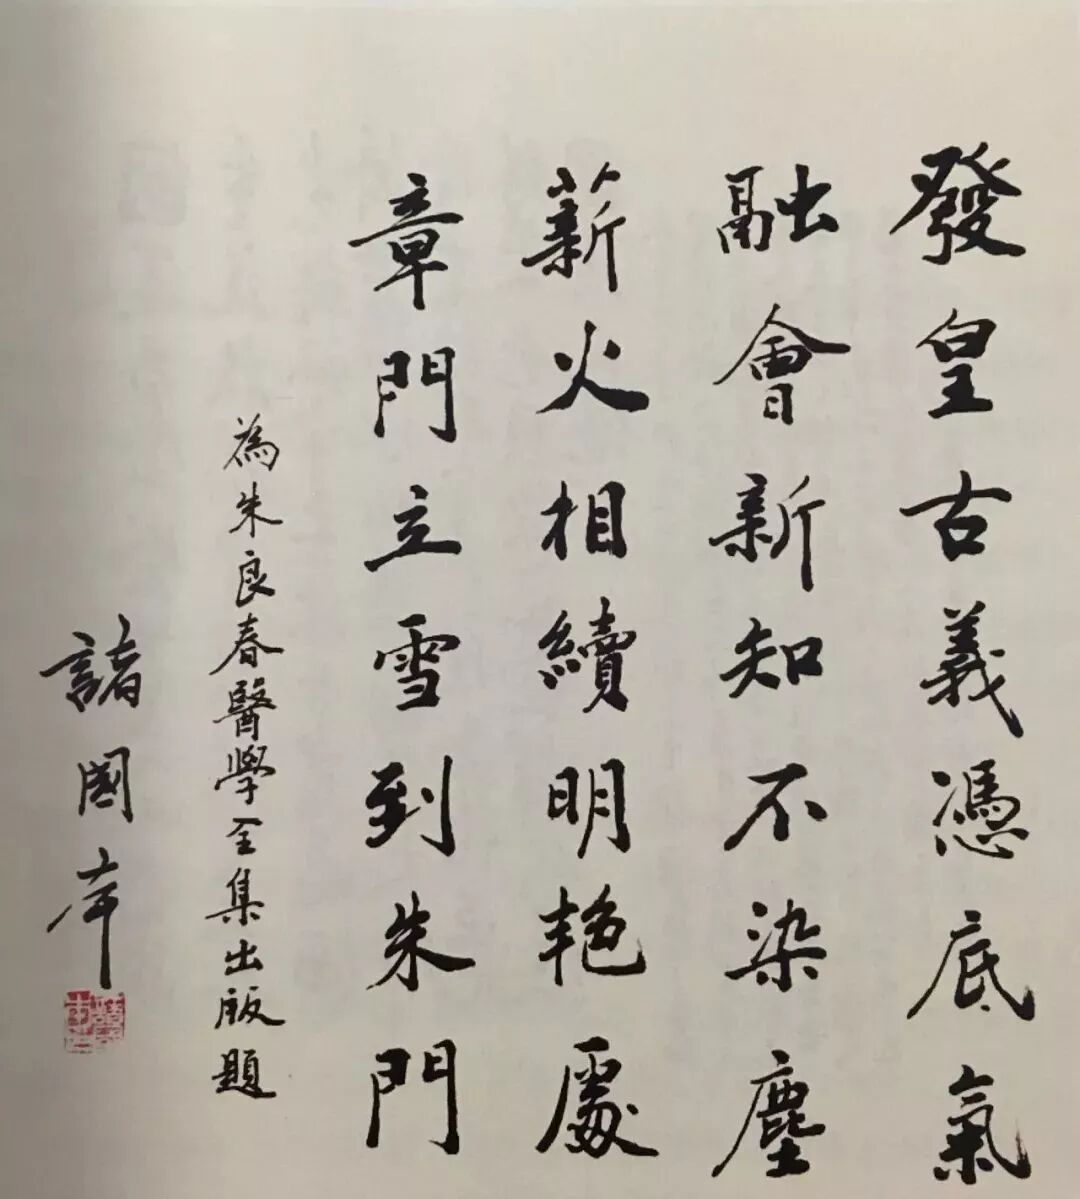 發皇古義憑底氣
融會新知不染塵
薪火相續明艳處
章門立雪到朱門
為朱良春醫學全集出版題
諸國本